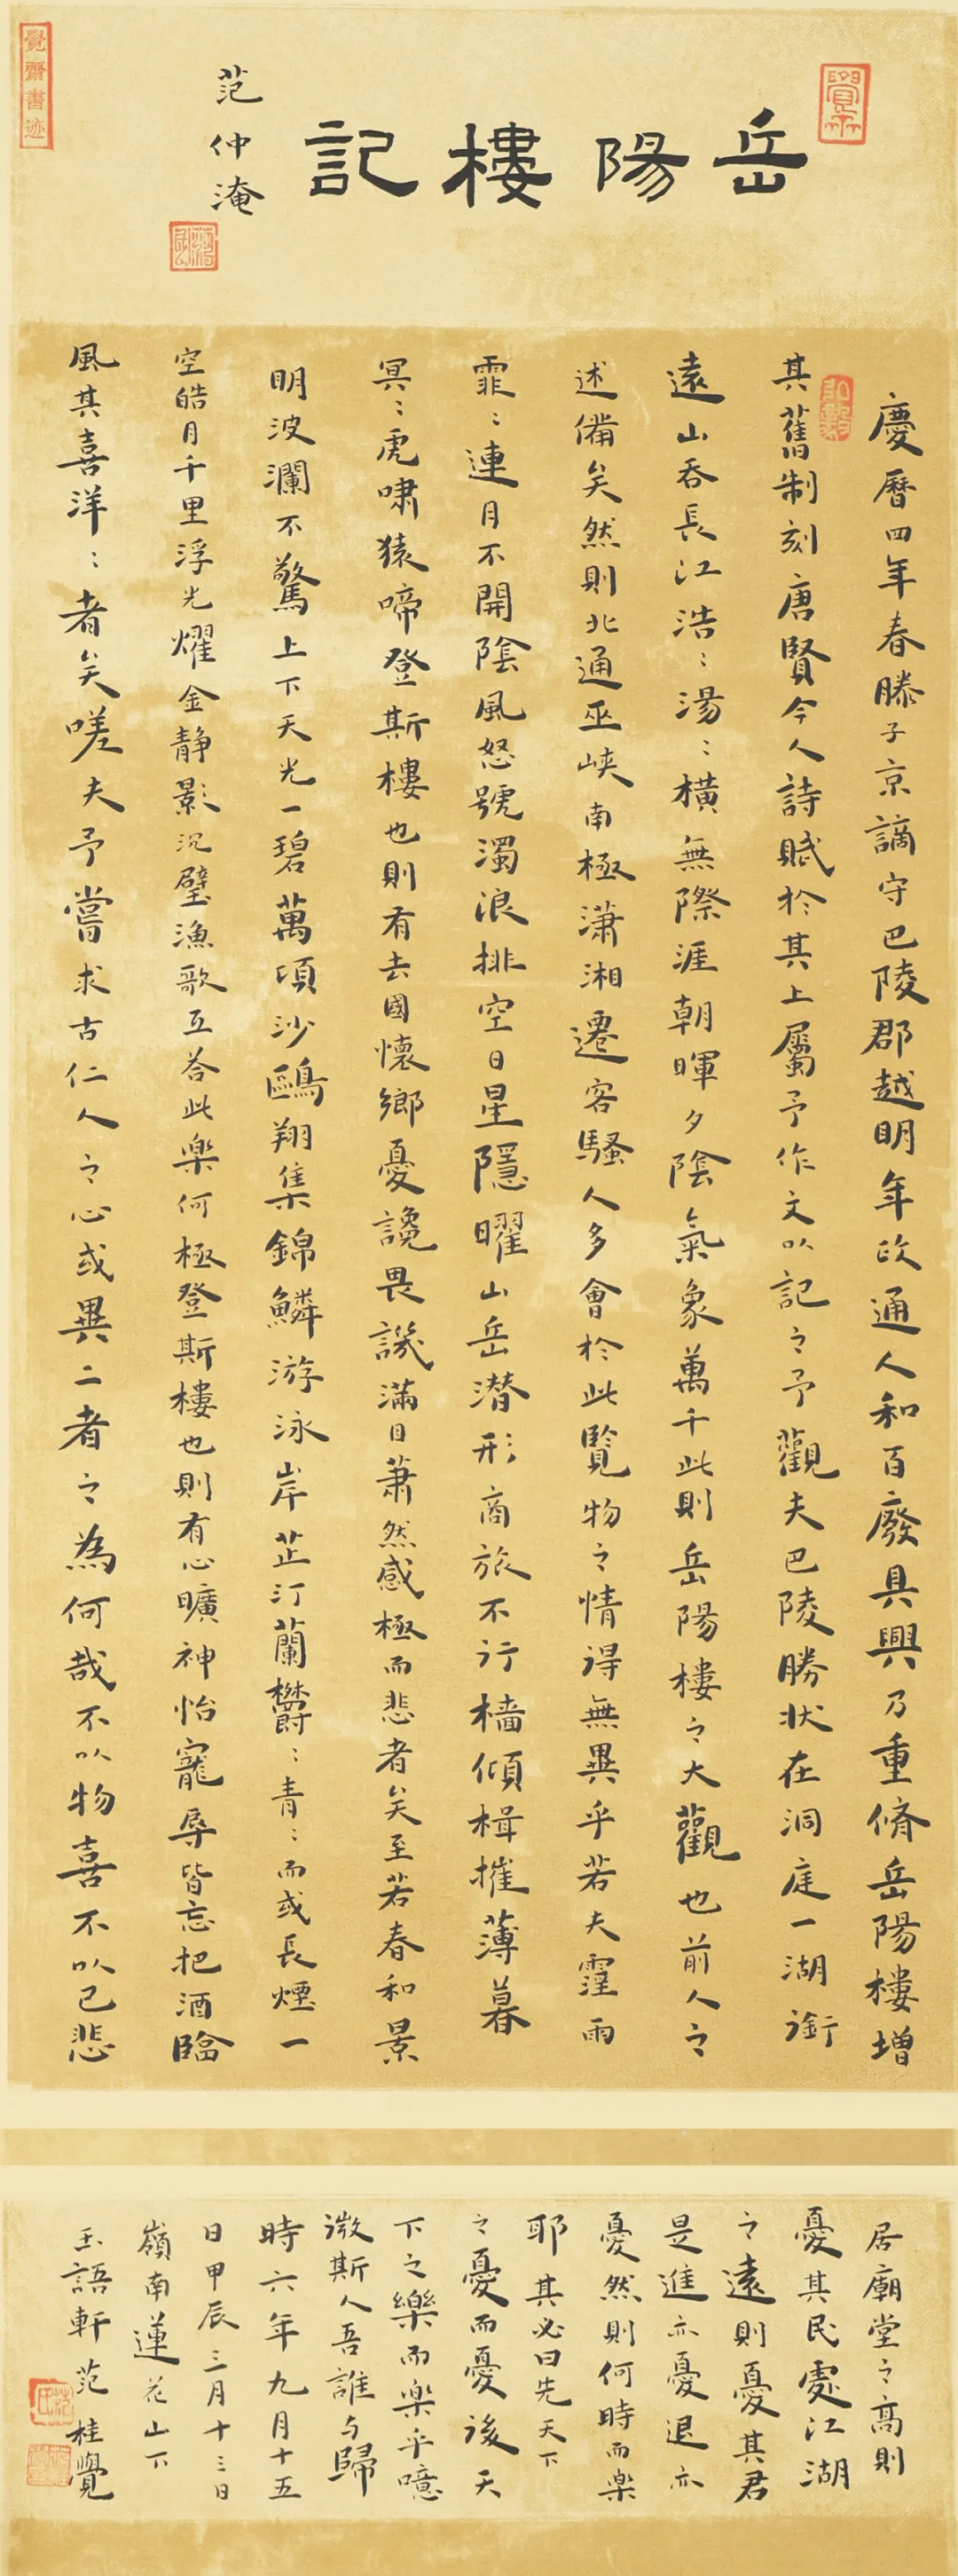 岳陽樓記
范仲淹
慶曆四年春滕子京謫守巴陵郡越明年政通人和百廢具興乃重脩岳陽樓增
其舊制刻唐賢今人詩賦於其上屬予作文以記之予觀夫巴陵勝狀在洞庭一湖銜
遠山吞長江浩:湯:橫無際涯朝暉夕陰氣象萬千此則岳陽樓之大觀也前人之
述備矣然則北通巫峽南極瀟湘遷客騷人多會於此覽物之情得無異乎若夫霪雨
霏:連月不開陰風怒號濁浪排空日星隱曜山岳潛形商旅不行檣傾楫摧薄暮
冥:虎嘯猿啼登斯樓也則有去國懷鄉憂讒畏譏滿目蕭然感極而悲者矣至若春和景
明波瀾不驚上下天光一碧萬頃沙鷗翔集錦鱗游泳岸芷汀蘭欝:青:而或長煙一
空皓月千里浮光耀金静影沉璧漁歌互荅此樂何極登斯樓也則有心曠神怡寵辱皆忘把酒臨
風其喜洋:者矣嗟夫予嘗求古仁人之心或異二者之為何哉不以物喜不以己悲
居廟堂之高則
憂其民處江湖
之遠則憂其君
是進亦憂退亦
憂然則何時而樂
耶其必曰先天下
之憂而憂後天
下之樂而樂乎噫
微斯人吾誰与歸
時六年九月十五
日甲辰三月十三日
嶺南蓮花山下
玉語軒范桂覺
覺齋書迹